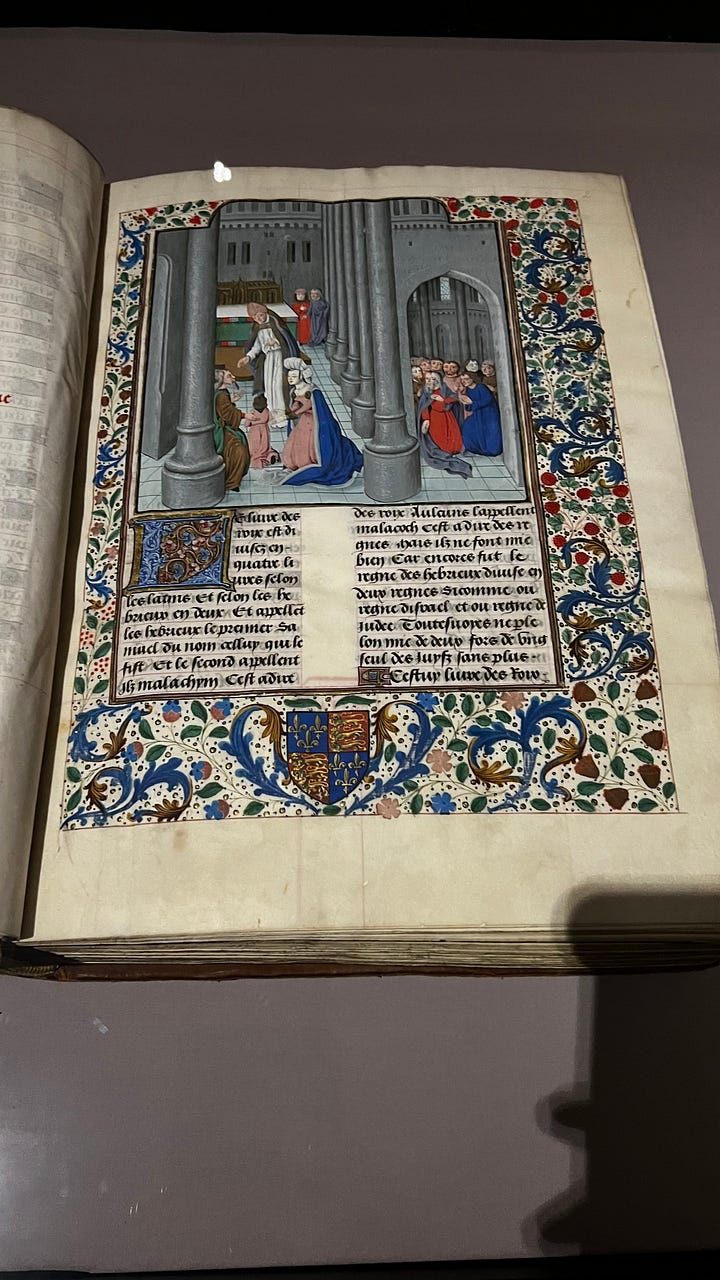 Le liure des
roix est di
uisez en
quatre li
ures selon
les latins Et selon les he
brieux en deux Et appellet
les hebrieux le premier Sa
muel du nom celluy qui le
fist Et le second appellent
ilz malachym Cest adire
des roix Aulcuns lappellent
malacoth Cest a dire des re
gnes Mais ilz ne font mie
bien Car encores fut le
regne des hebrieux diuise en
deux regnes Sicomme ou
regne disrael et ou regne de
iudee Toutesuoyes ne ple
lon mie de deux fors de vng
seul des Iuyfz sans plus
Cestuy liure des Roix